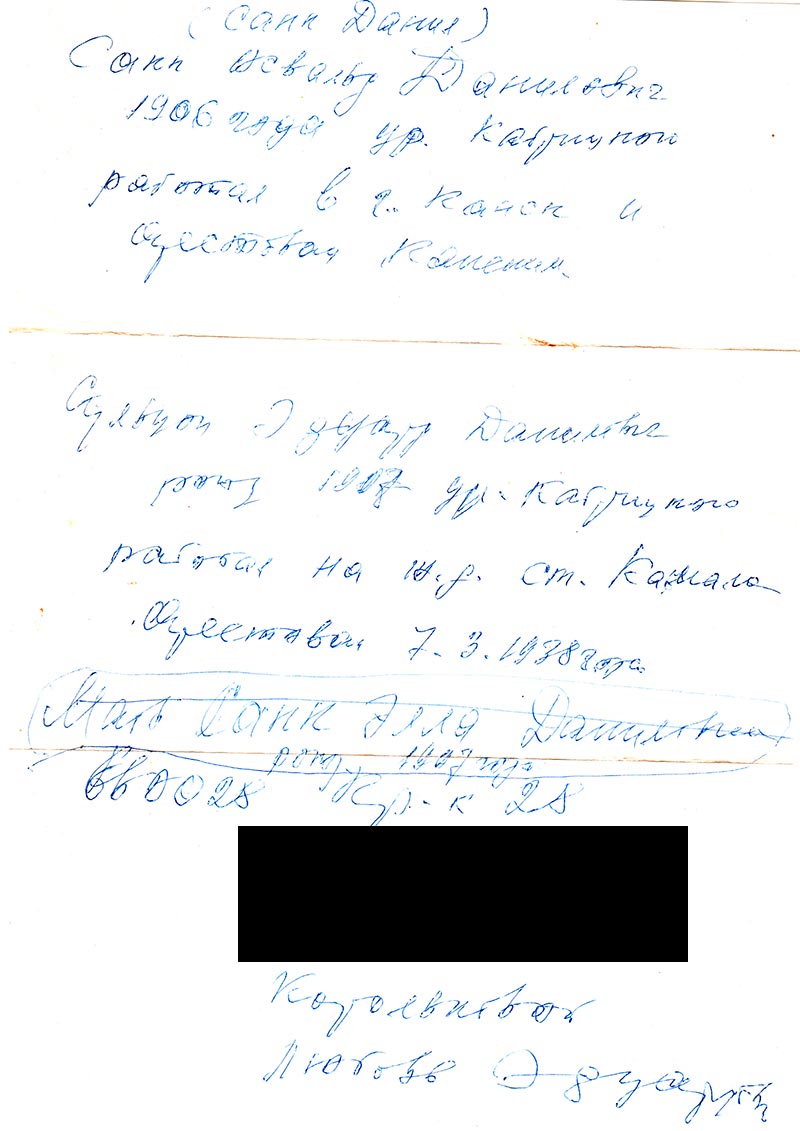 (Санн Данил)
Санн Освальд Данилович
1906 года ур. Кабрицкой
работал в г. Канск и
арестован Канским.
Эдуард Данилович
рожд 1907 ур. Кабрицкого
работал на ж.д. ст. Камала
Арестован 7.3.1938 года
Мать Санн Элла Даниловна
рожд 1907 года
28 гр-к 28
Любовь Эдуард